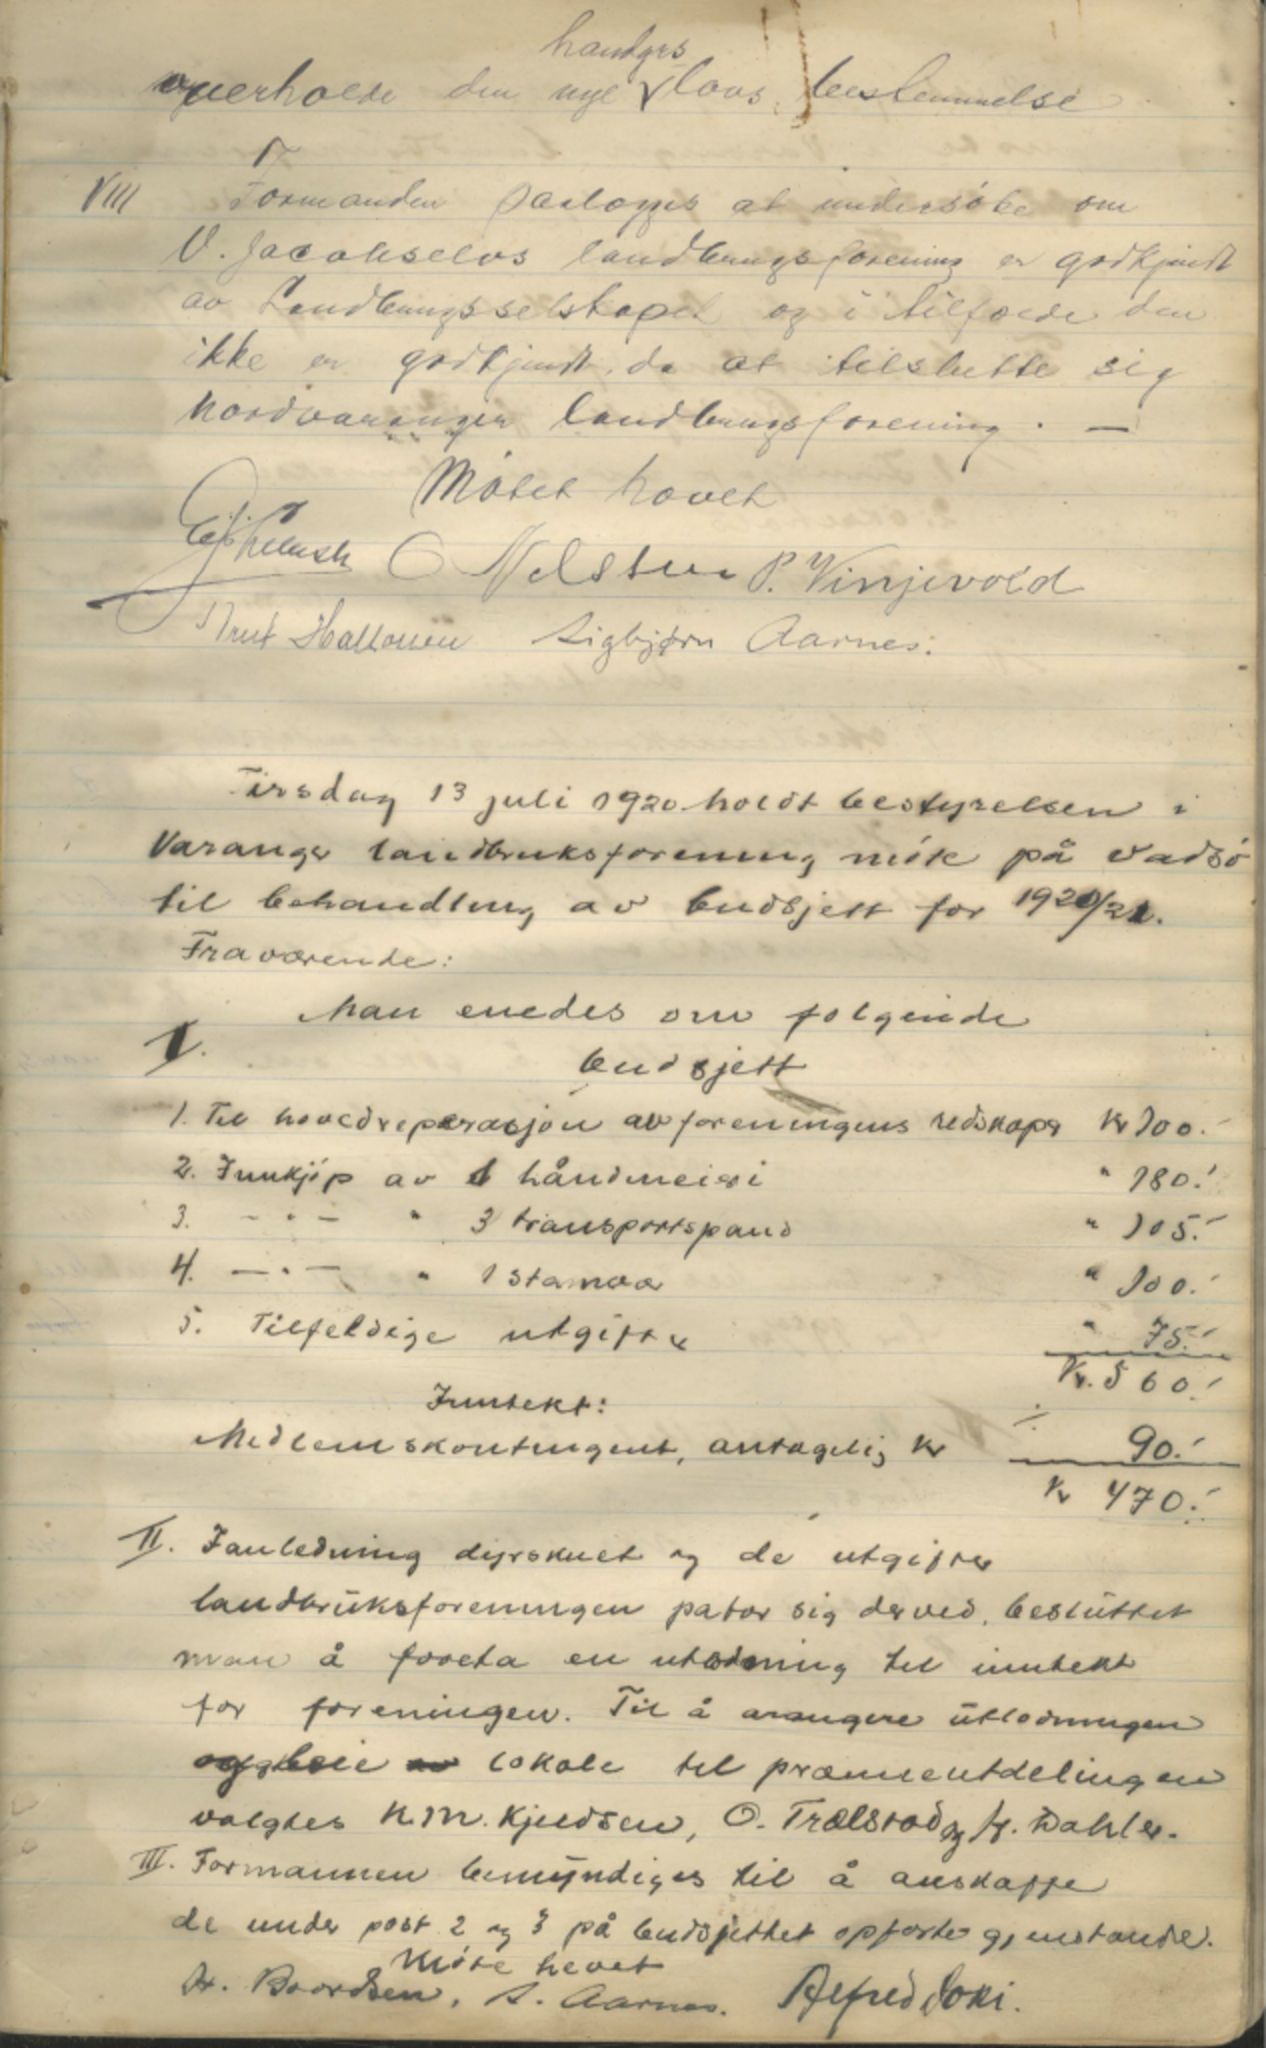 overholde den nye havnes lovs bestemmelse
VIII Formanden paalægges at undersøke om
V. Jacobselvs landbruksforening er godkjendt
av Landbruksselskapet og i tilfælde den
ikke er godkjendt, da at tilslutte sig
Nordvaranger landbruksforening. —
Møtet hævet
O Nelsten P. Vinjevold
Hallonen Sigbjørn Aarnes.
Tirsdag 13 juli 1920 holdt bestyrelsen i
Varanger landbruksforening møte på Vadsö
til behandling av budsjett for 1920/21.
Fraværende:
Man enedes om følgende
I. budsjett
1. Til hovedreparasjon av foreningens redskaper Kr 100.-
2. Innkjöp av 1 håndmeieri " 180.-
3. - " - " 3 transportspand " 105.-
4. - " - " 1 stamvær " 100.-
5. Tilfeldige utgifter " 75.-
Kr. 560.-
Inntekt:
Medlemskontingent, antagelig kr ÷ 90.-
Kr 470.-
II. I anledning dyrskuet og de utgifter
landbruksforeningen patar sig derved, besluttet
man å foreta en utlodning til inntekt
for foreningen. Til å arangere utlodningen
og leie lokale til præmieutdelingen
valgtes N.M. Kjeldsen, O. Trælstad og H. Dahler.
III. Formannen bemyndiges til å anskaffe
de under post 2 og 3 på budsjettet opförte gjenstande.
Möte hevet
H. Baardsen, S. Aarnes. Alfred Joki.